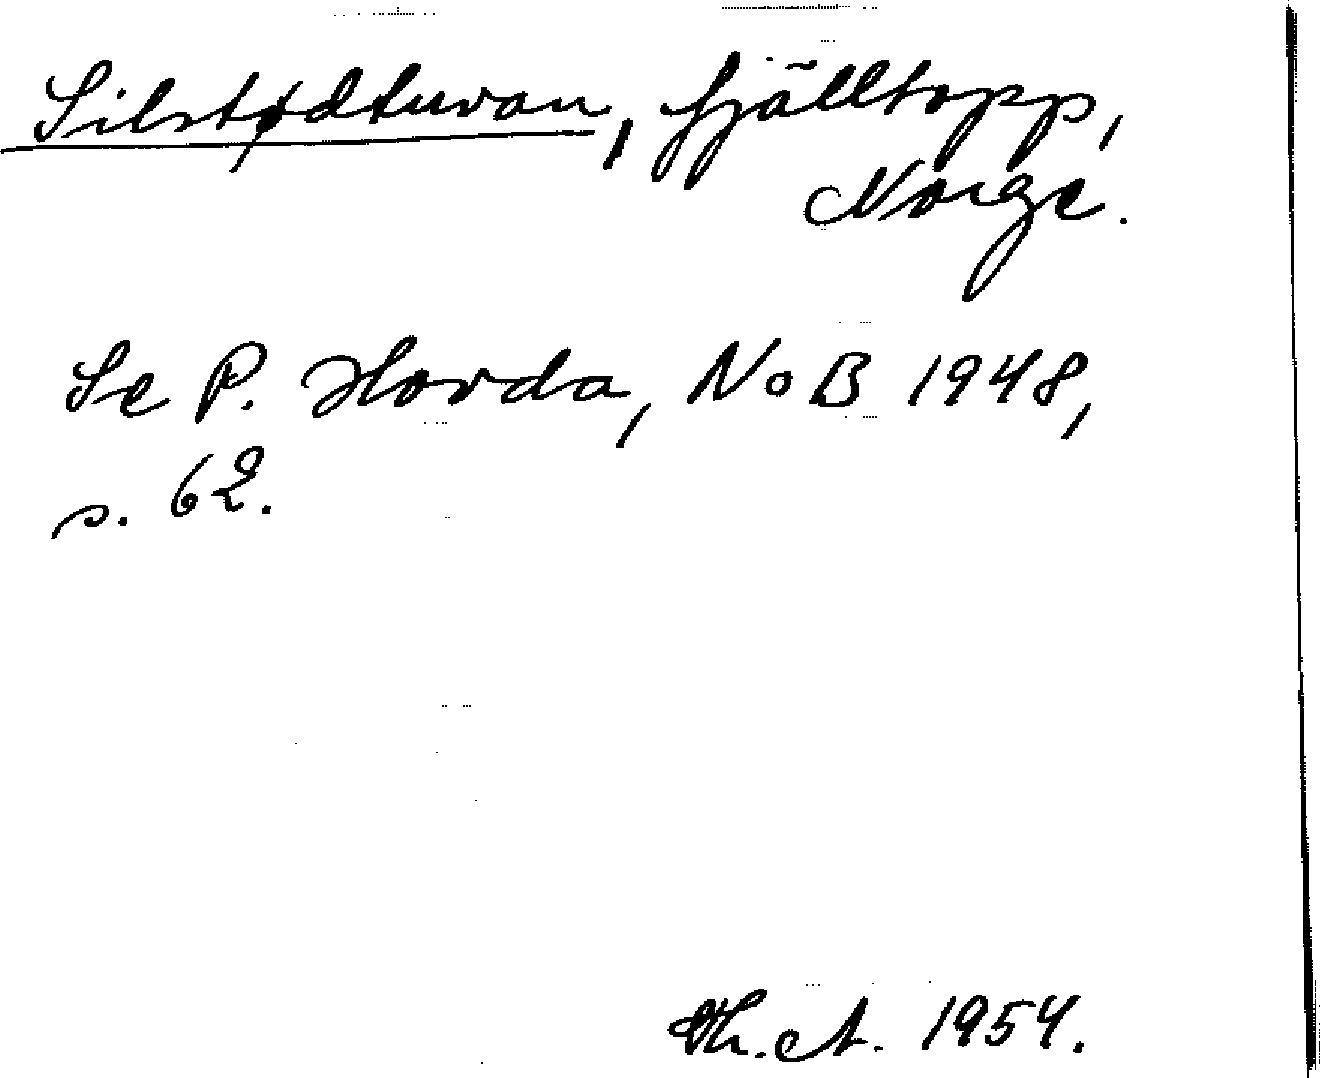 Silstødtuvan, fjälltopp,
Norge.
Se P. Hovda, NoB 1948,
s. 62.
Th. A. 1954.